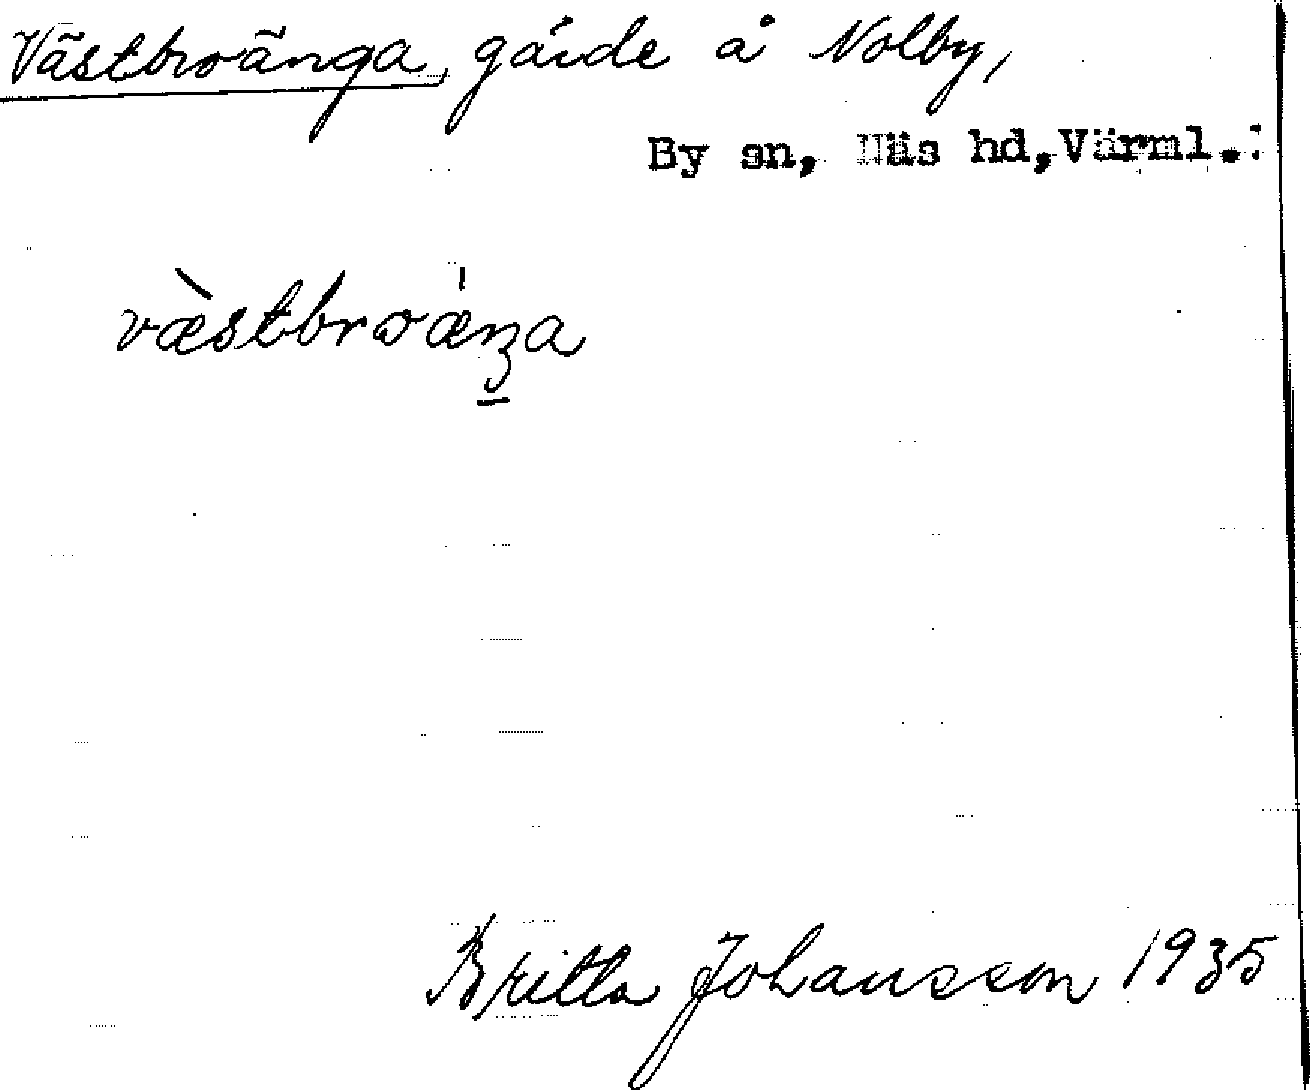 Västbroänga, gärde å Nolby,
By sn, Näs hd, Värml.
væ̀stbroǽŋa
Britta Johansson 1935